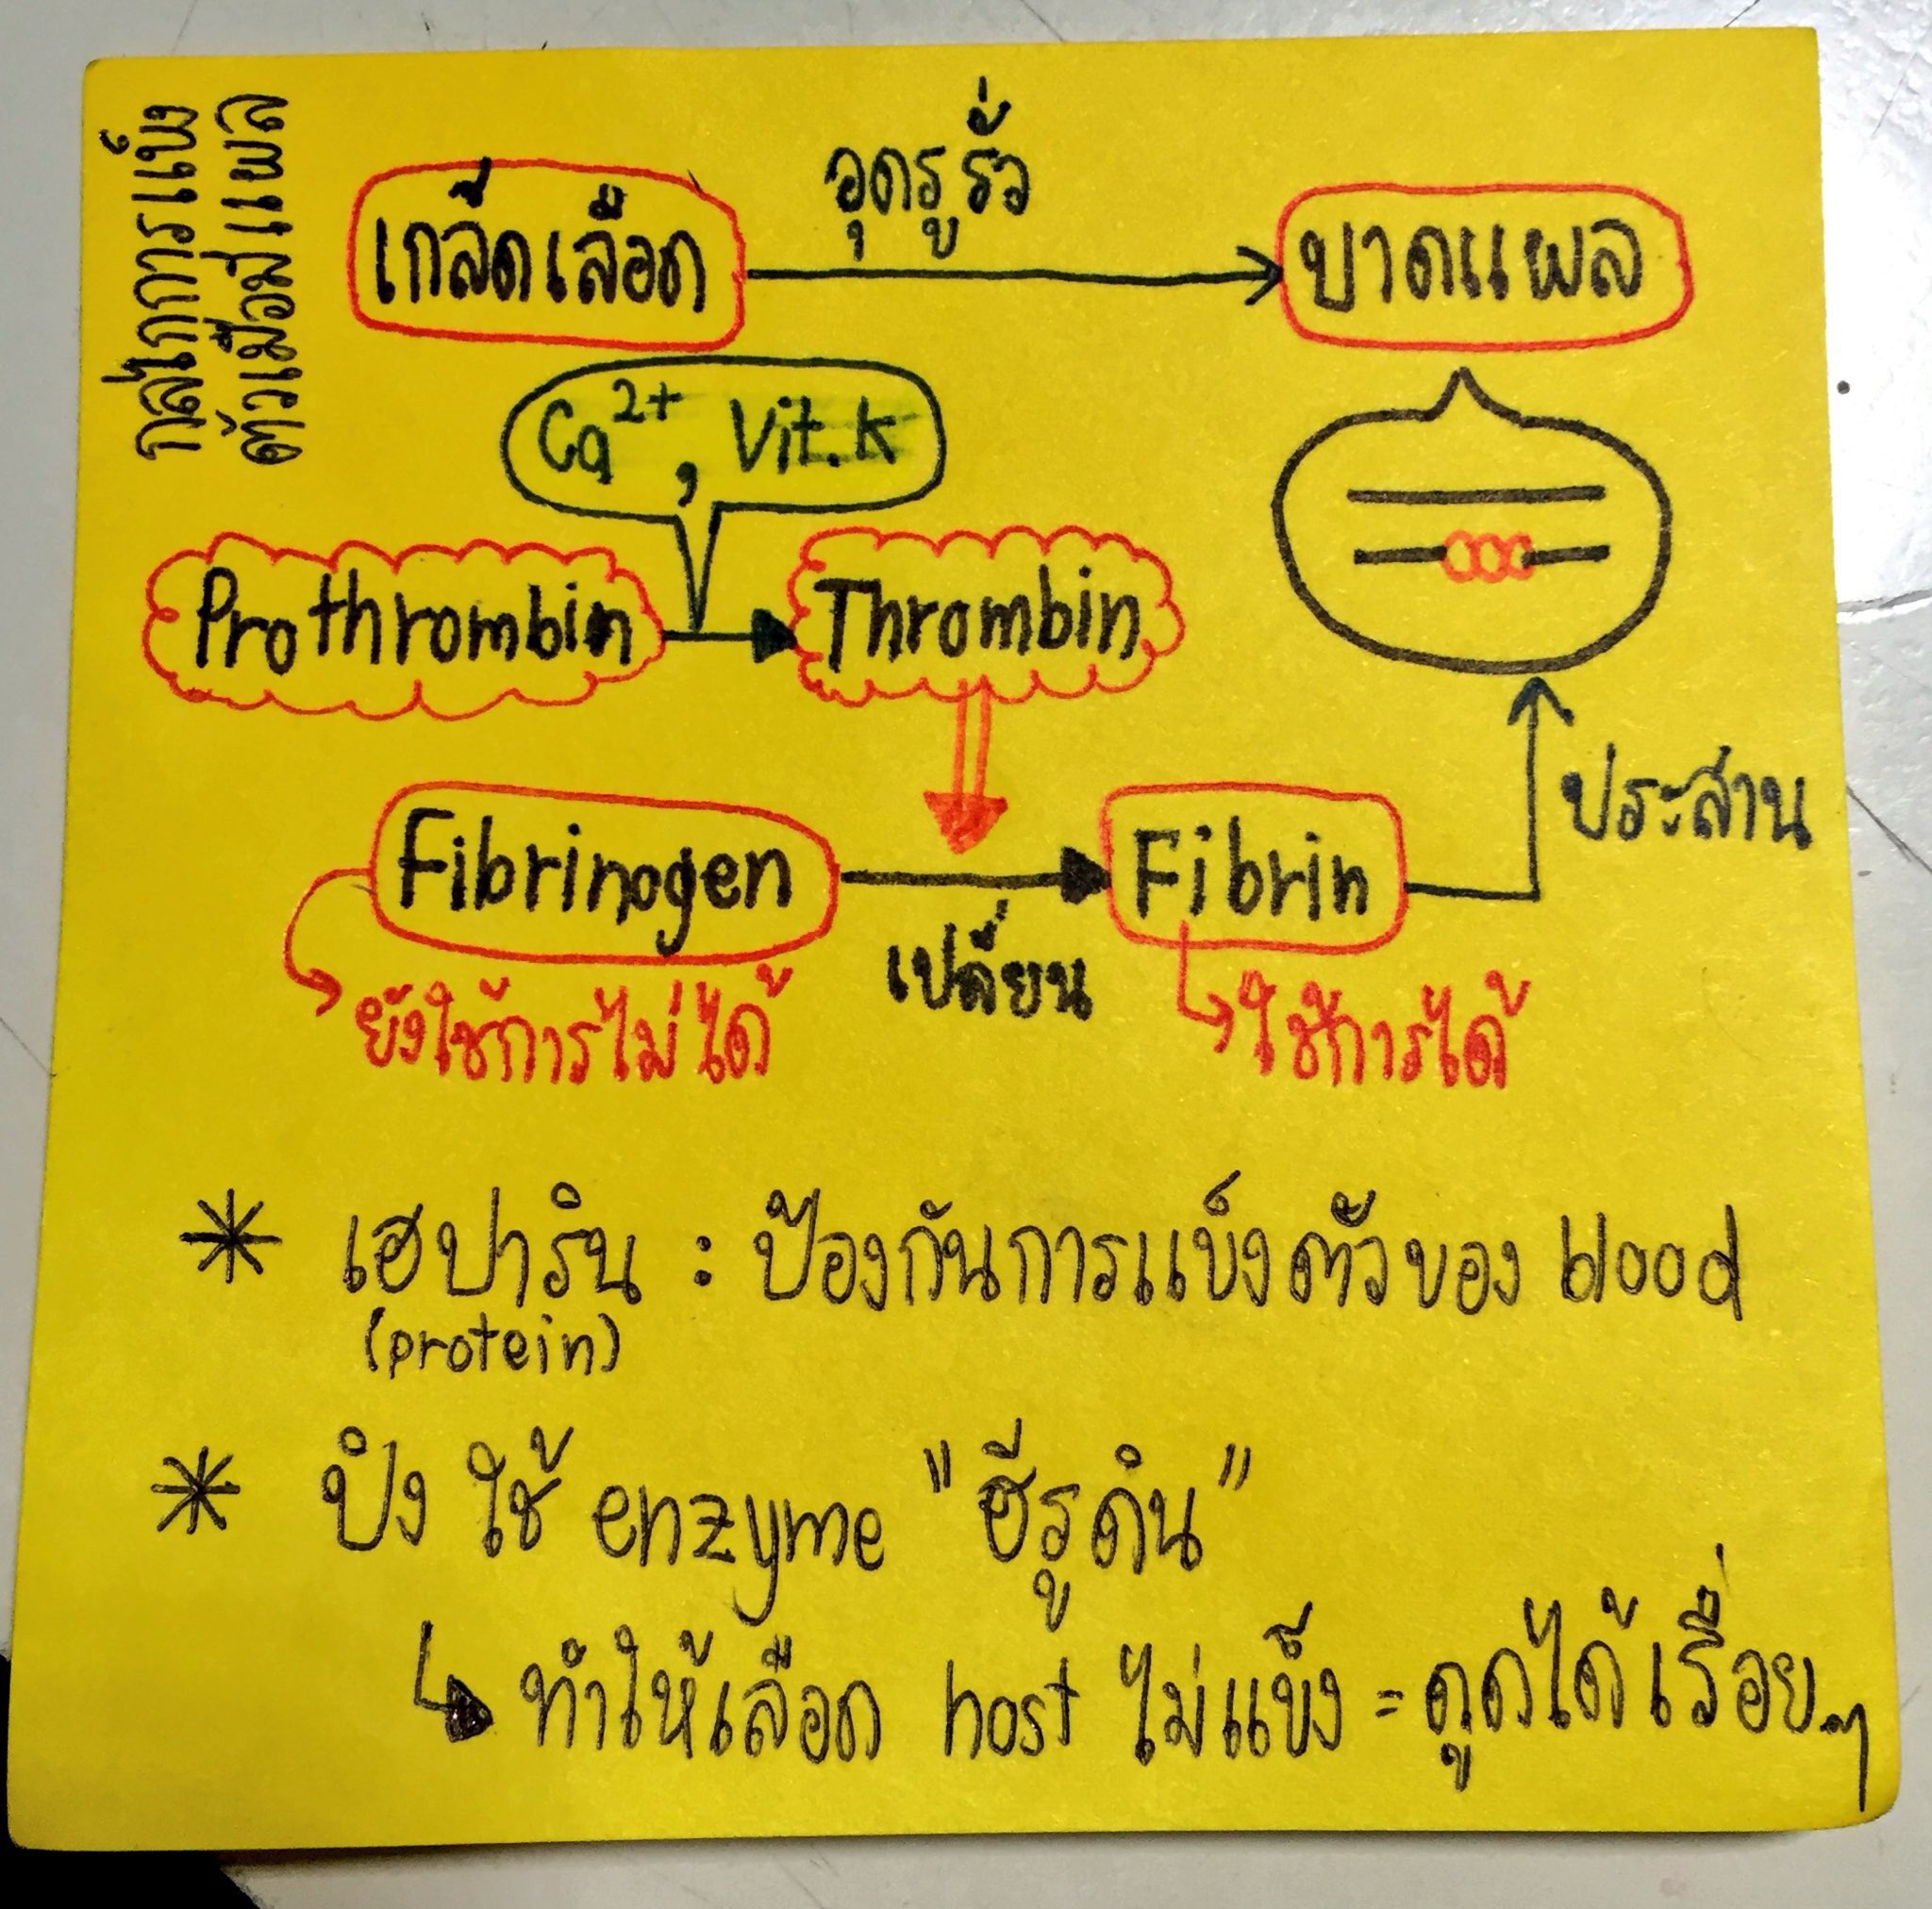 กลไกการแข็ง
ตัวเมื่อมีแผล
เกล็ดเลือด
อุดรูรั่ว
บาดแผล
Ca2+, Vit.K
Prothrombin
Thrombin
Fibrinogen
เปลี่ยน
Fibrin
ประสาน
ยังใช้การไม่ได้
ใช้การได้
* เฮปาริน : ป้องกันการแข็งตัวของ blood
(protein)
* ปิง ใช้ enzyme "ฮีรูดิน"
↳ ทำให้เลือด host ไม่แข็ง = ดูดได้เรื่อยๆ